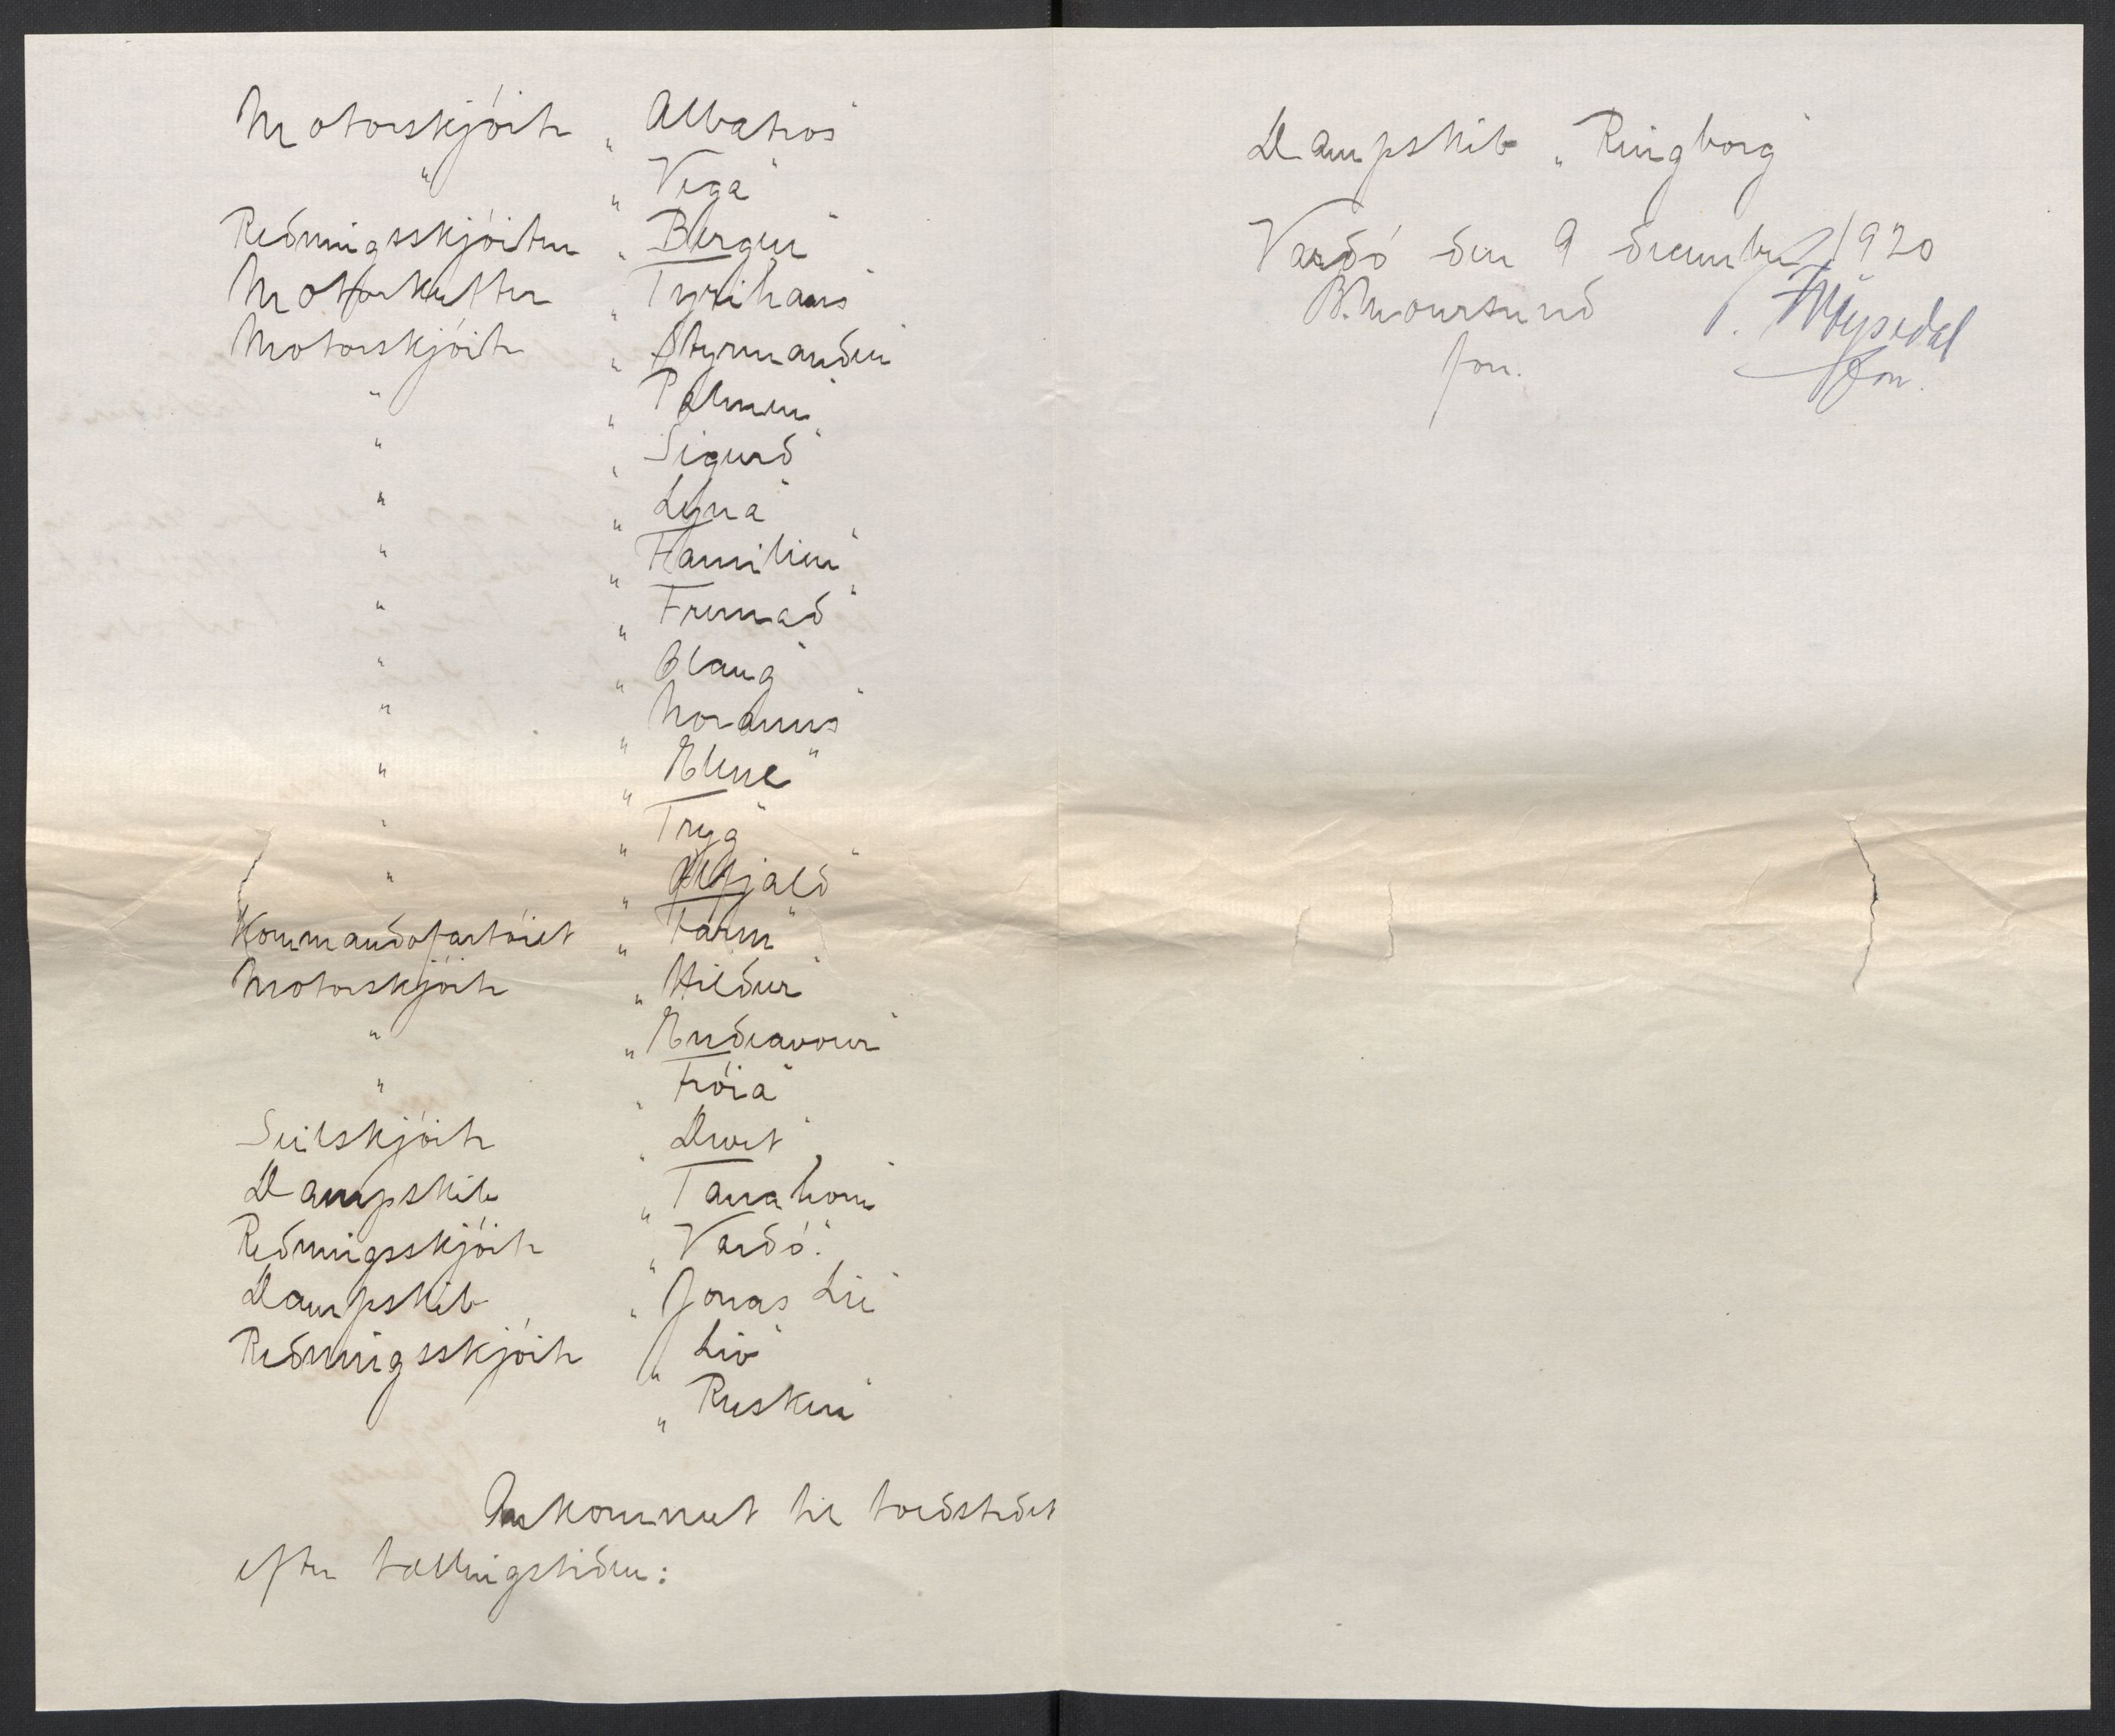 Motorskjöite „Albatros"
" „Vega"
Redningsskjöiten „Bergen"
Motorkutter „Tyrihans"
Motorskjöite „Styrmanden"
" „Palmen"
" „Sigurd"
" „Lyna"
" „Familien"
" „Fremad"
" „Olaug"
" „Noranus"
" „Eline"
" „Tryg"
" „Ægjald"
Kommandofartöiet „Farm"
Motorskjöite „Hildur"
" „Endeavour"
" „Fröia"
Seilskjöite „Duet"
Dampskib „Tanahorn"
Redningsskjöite „Vardö".
Dampskib „Jonas Lie"
Redningsskjöite „Liv"
„Ruskin"
Ankommet til toldstedet
efter tællingstiden:
Dampskib „Ringborg"
Vardö den 9 december 1920
B. Moursund
fon.